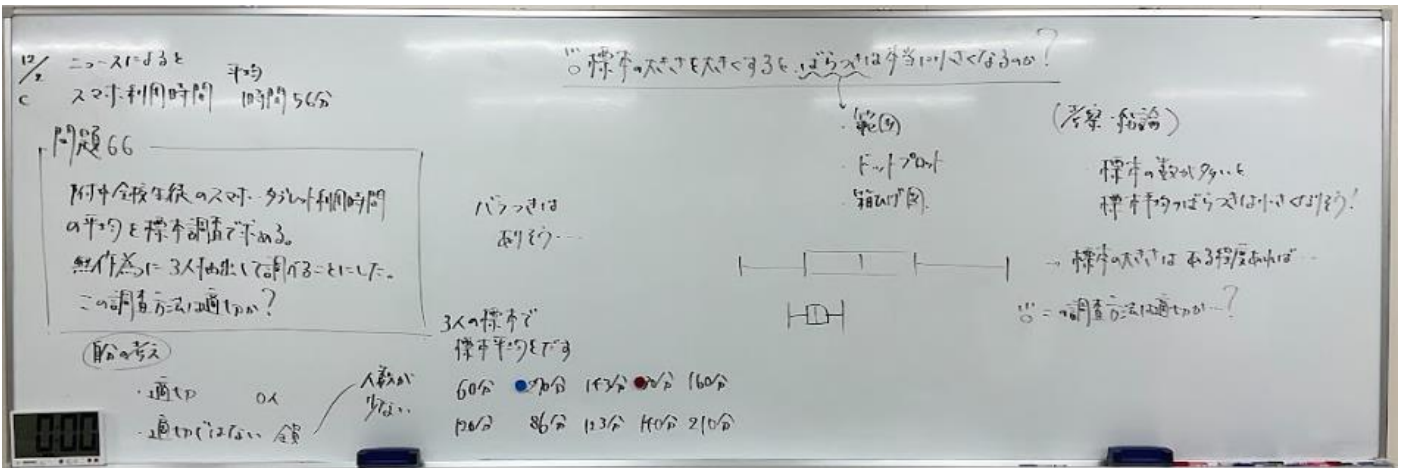 12/2
C
ニュースによると
スマホ利用時間 平均 1時間56分
問題66
附中全校生徒のスマホ・タブレット利用時間
の平均を標本調査で求める。
無作為に3人抽出して調べることにした。
この調査方法は適切か?
自分の考え
・適切 0人
・適切ではない 全員
人数が
少ない
バラつきは
ありそう…
3人の標本で
標本平均をだす
60分 90分 143分 160分
120分 86分 123分 140分 210分
標本の大きさを大きくすると、ばらつきは本当に小さくなるのか?
・範囲
・ドットプロット
・箱ひげ図
(考察・結論)
標本の数が多いと
標本平均のばらつきは小さくなりそう!
→標本の大きさはある程度あれば…
この調査方法は適切か…?
0:00